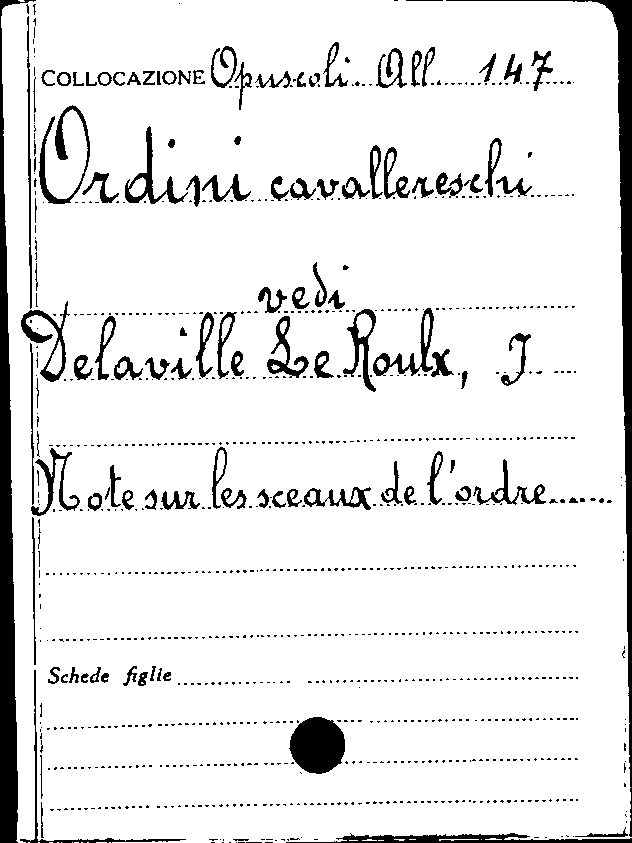 COLLOCAZIONE Opuscoli. All. 147
Ordini cavallereschi
vedi
Delaville Le Roulx, J.
Note sur les sceaux de l'ordre.......
Schede figlie